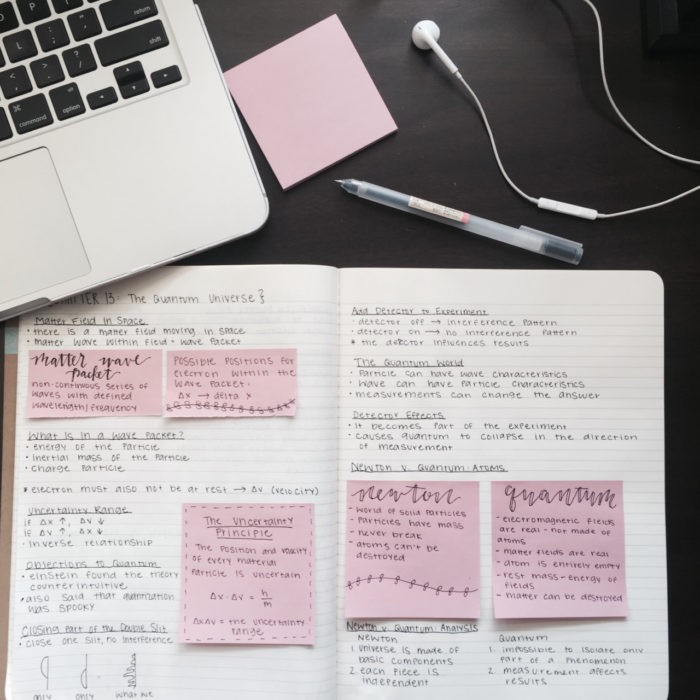 return
shift
command
option
CHAPTER 13: The Quantum Universe }
Matter Field In Space
• there is a matter field moving in space
• matter wave within field = wave packet
matter wave
packet
non-continuous series of
waves with defined
wavelength/frequency
Possible positions for
electron within the
wave packet:
Δx → delta x
What Is In a Wave Packet?
• energy of the particle
• inertial mass of the particle
• charge particle
* electron must also not be at rest → Δv (velocity)
Uncertainty Range
if Δx ↑, Δv ↓
if Δv ↑, Δx ↓
• inverse relationship
The Uncertainty
Principle
The position and velocity
of every material
particle is uncertain
Δx · Δv = h/m
ΔxΔv = the uncertainty
range
Objections to Quantum
• einstein found the theory
counter intuitive
• also said that quantization
was spooky
Closing Part of the Double Slit
• close one slit, no interference
only
only
what we
Add Detector to Experiment
• detector off → interference pattern
• detector on → no interference pattern
* the detector influences results
The Quantum World
• particle can have wave characteristics
• wave can have particle characteristics
• measurements can change the answer
Detector Effects
• it becomes part of the experiment
• causes quantum to collapse in the direction
of measurement
Newton v. Quantum Atoms
newton
- world of solid particles
- particles have mass
- never break
- atoms can't be
destroyed
quantum
- electromagnetic fields
are real - not made of
atoms
- matter fields are real
- atom is entirely empty
- rest mass - energy of
fields
- matter can be destroyed
Newton v. Quantum: Analysis
Newton
1. universe is made of
basic components
2. each piece is
independent
Quantum
1. impossible to isolate only
part of a phenomenon
2. measurement affects
results